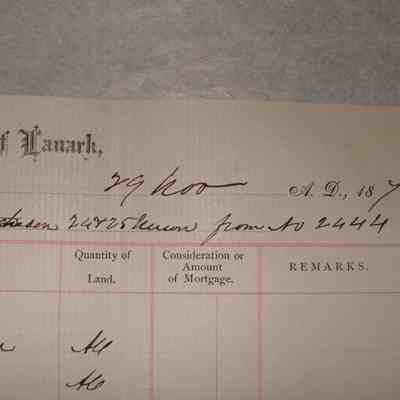 of Lanark,
29 Nov A. D., 187
24 & 25 from No 2444
Quantity of
Land.
Consideration or
Amount
of Mortgage.
REMARKS.
All
All